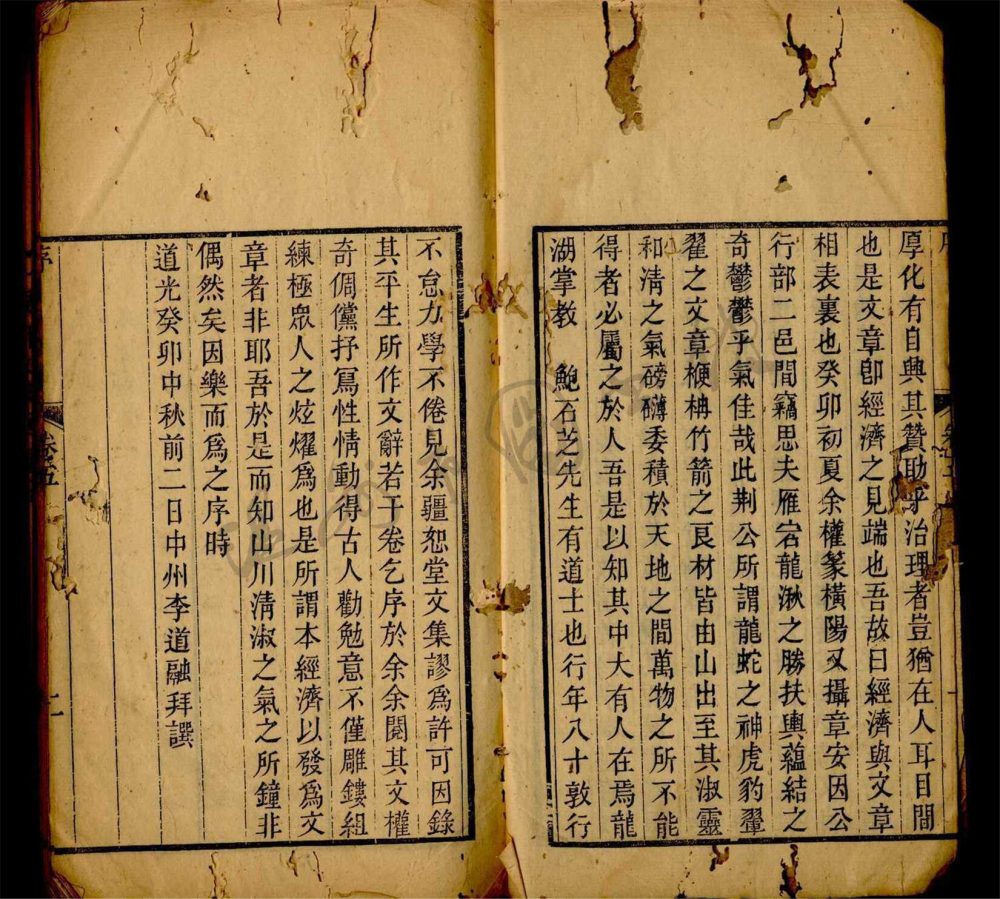 厚化有自興其贊助乎治理者豈猶在人耳目間
也是文章卽經濟之見端也吾故曰經濟與文章
相表裏也癸卯初夏余權篆橫陽又攝章安因公
行部二邑間竊思夫雁宕龍湫之勝扶輿蘊結之
奇鬱鬱乎氣佳哉此荆公所謂龍蛇之神虎豹翬
翟之文章楩柟竹箭之良材皆由山出至其淑靈
和淸之氣磅礴委積於天地之間萬物之所不能
得者必屬之於人吾是以知其中大有人在焉龍
湖掌教 鮑石芝先生有道士也行年八十敦行
不怠力學不倦見余疆恕堂文集謬爲許可因錄
其平生所作文辭若干卷乞序於余余閱其文權
奇倜儻抒寫性情動得古人勸勉意不僅雕鏤組
練極眾人之炫燿爲也是所謂本經濟以發爲文
章者非耶吾於是而知山川淸淑之氣之所鐘非
偶然矣因樂而爲之序時
道光癸卯中秋前二日中州李道融拜譔
序
卷五
二